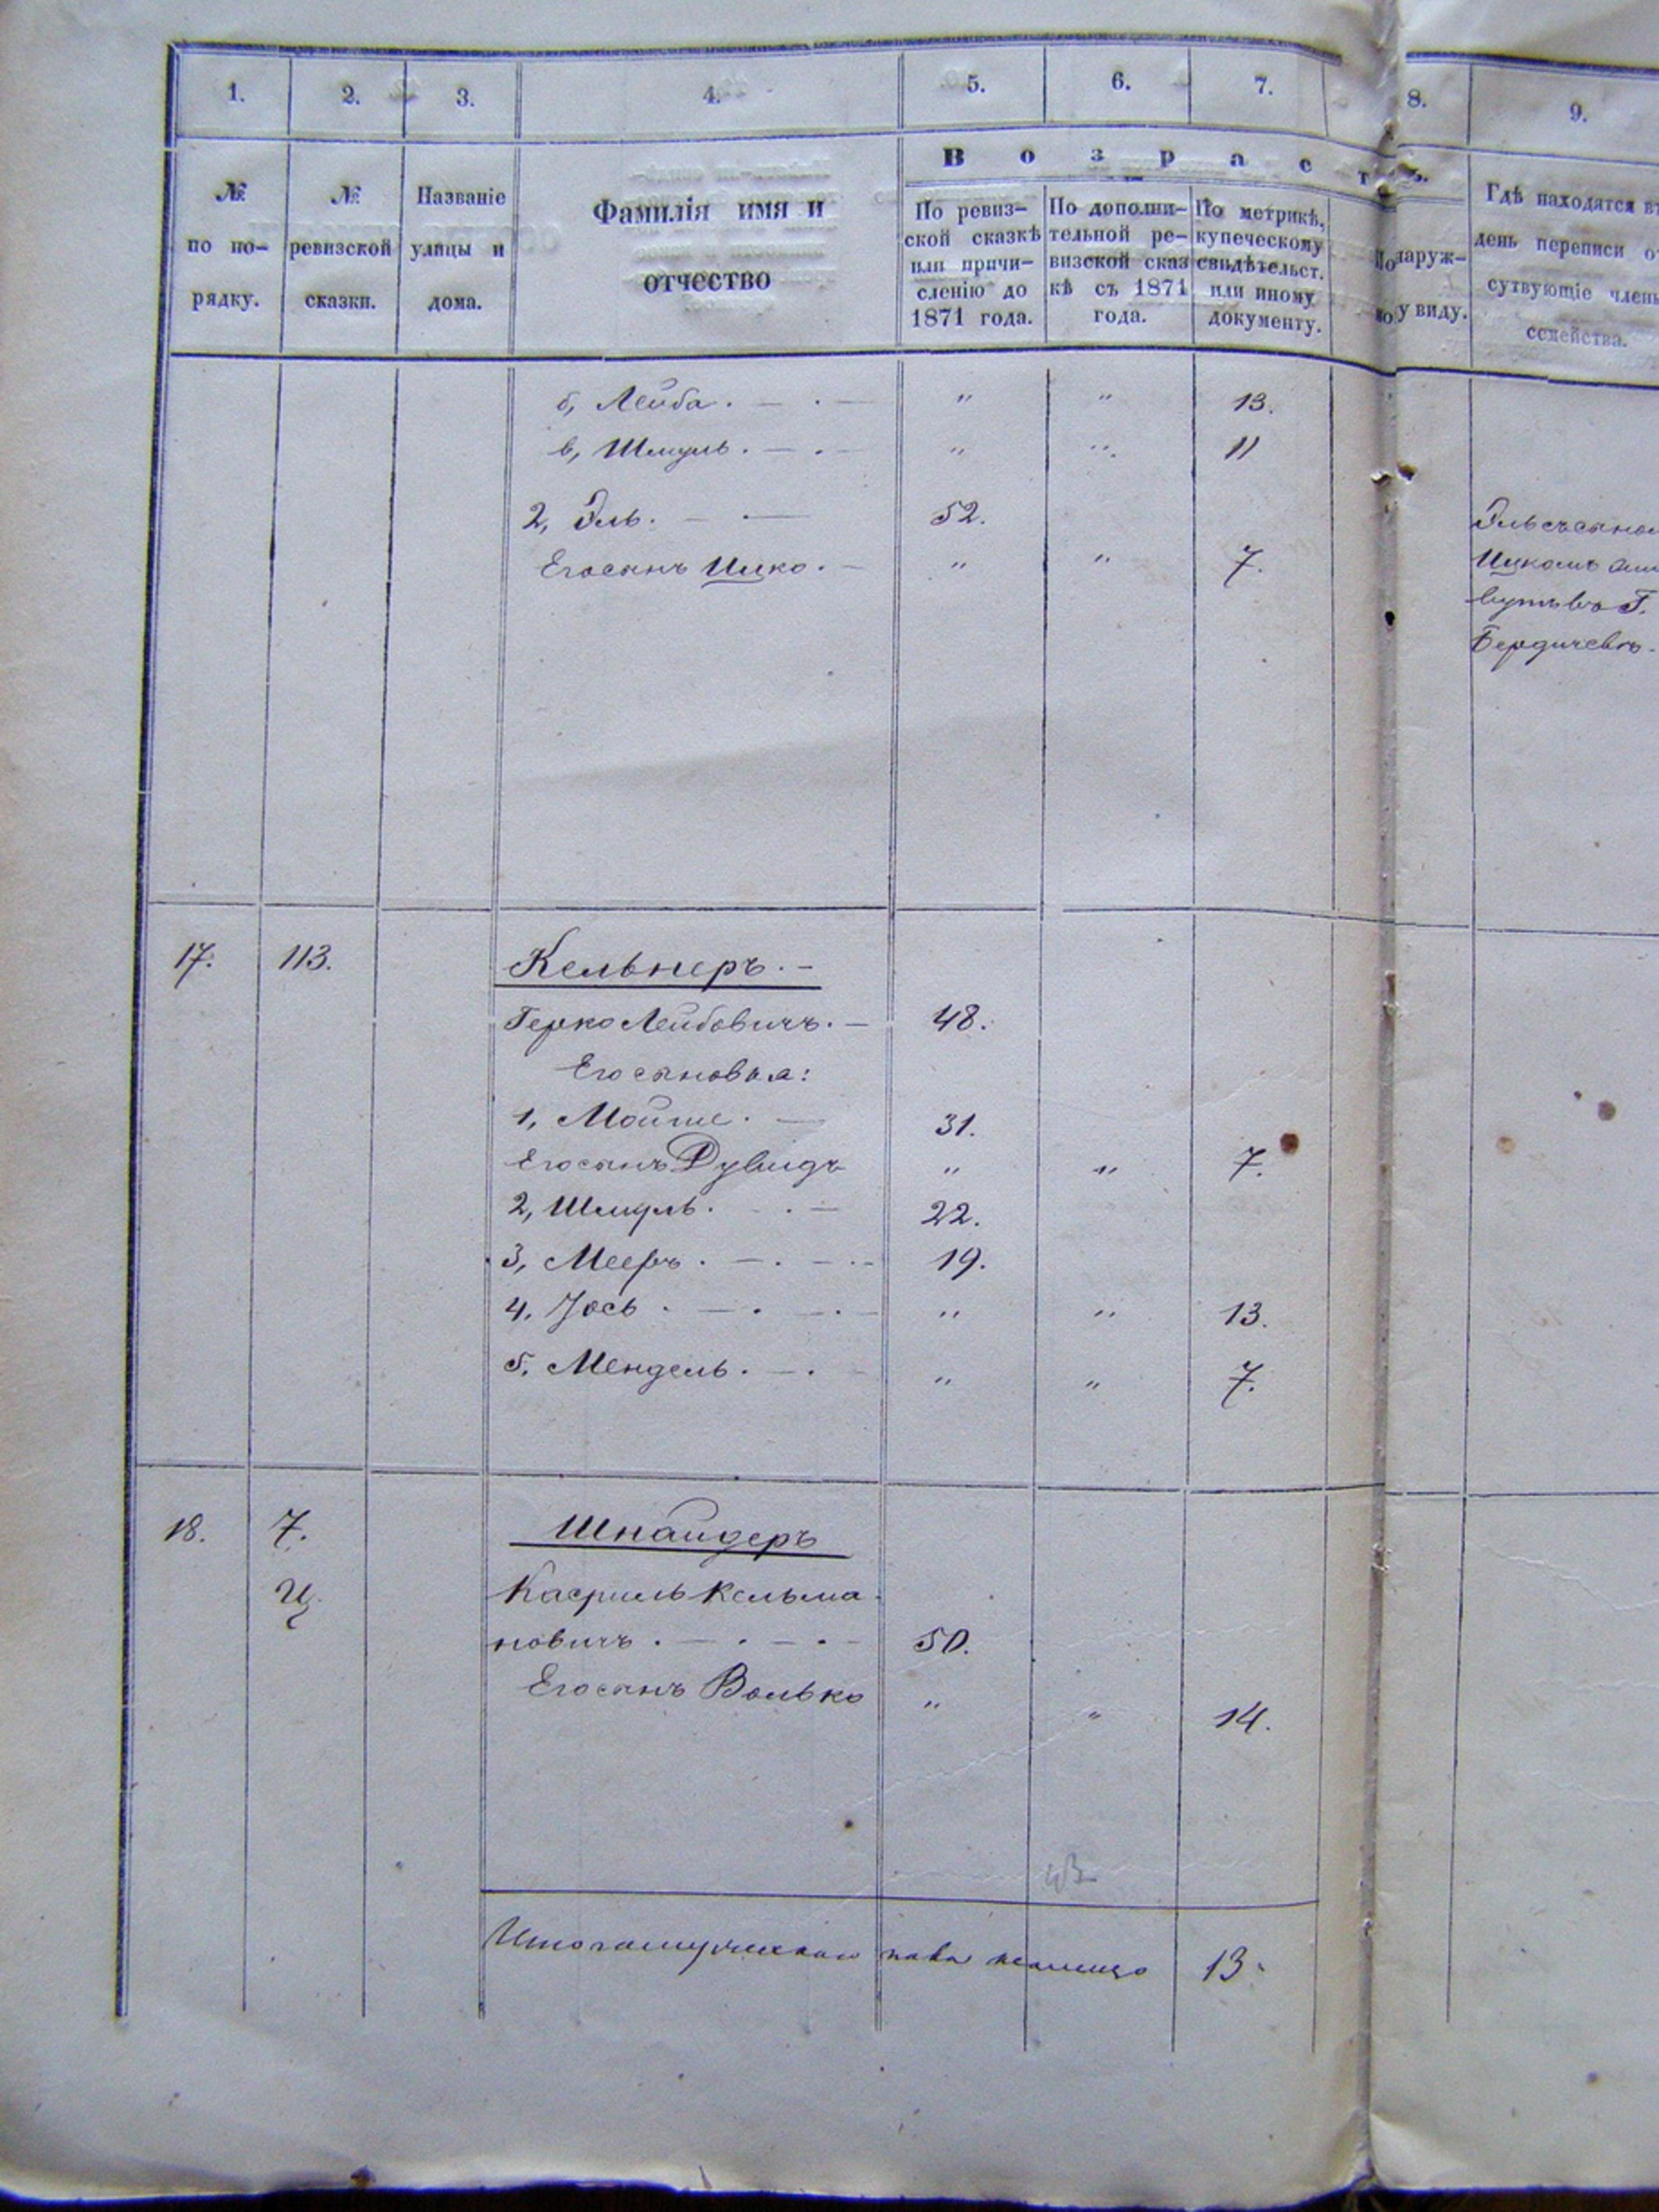 1. 2. 3. 4. 5. 6. 7. 8. 9.
Возрастъ.
№ по по-рядку.
№ ревизской сказки.
Названіе улицы и дома.
Фамилія имя и отчество
По ревиз-ской сказкѣ или причи-сленію до 1871 года.
По дополни-тельной ре-визской сказ кѣ съ 1871 года.
По метрикѣ, купеческому свидѣтельст. или иному документу.
По наруж-ному виду.
Гдѣ находятся въ
день переписи от
сутвующіе член
семейства.
б, Лейба. — . — " " 13.
в, Шмуль. — . — " " 11
2, Эль. — . — 52.
Егосынъ Ицко. — " " 7.
Эль съ сыном
Ицкомъ
Г.
Бердичевѣ.
17. 113. Кельнеръ. —
Герко Лейбовичъ. — 48.
Его сыновья:
1, Мойше. — 31.
Его сынъ Дувидъ " " 7.
2, Шмуль. . — 22.
3, Мееръ. — . — . — 19.
4. Іось. — . — . — " " 13.
5. Мендель. — . — " " 7.
18. 7. Шнайдеръ
Ц. Касриль Кельма
новичъ. — . — . — 50.
Его сынъ Волько " " 14.
13.